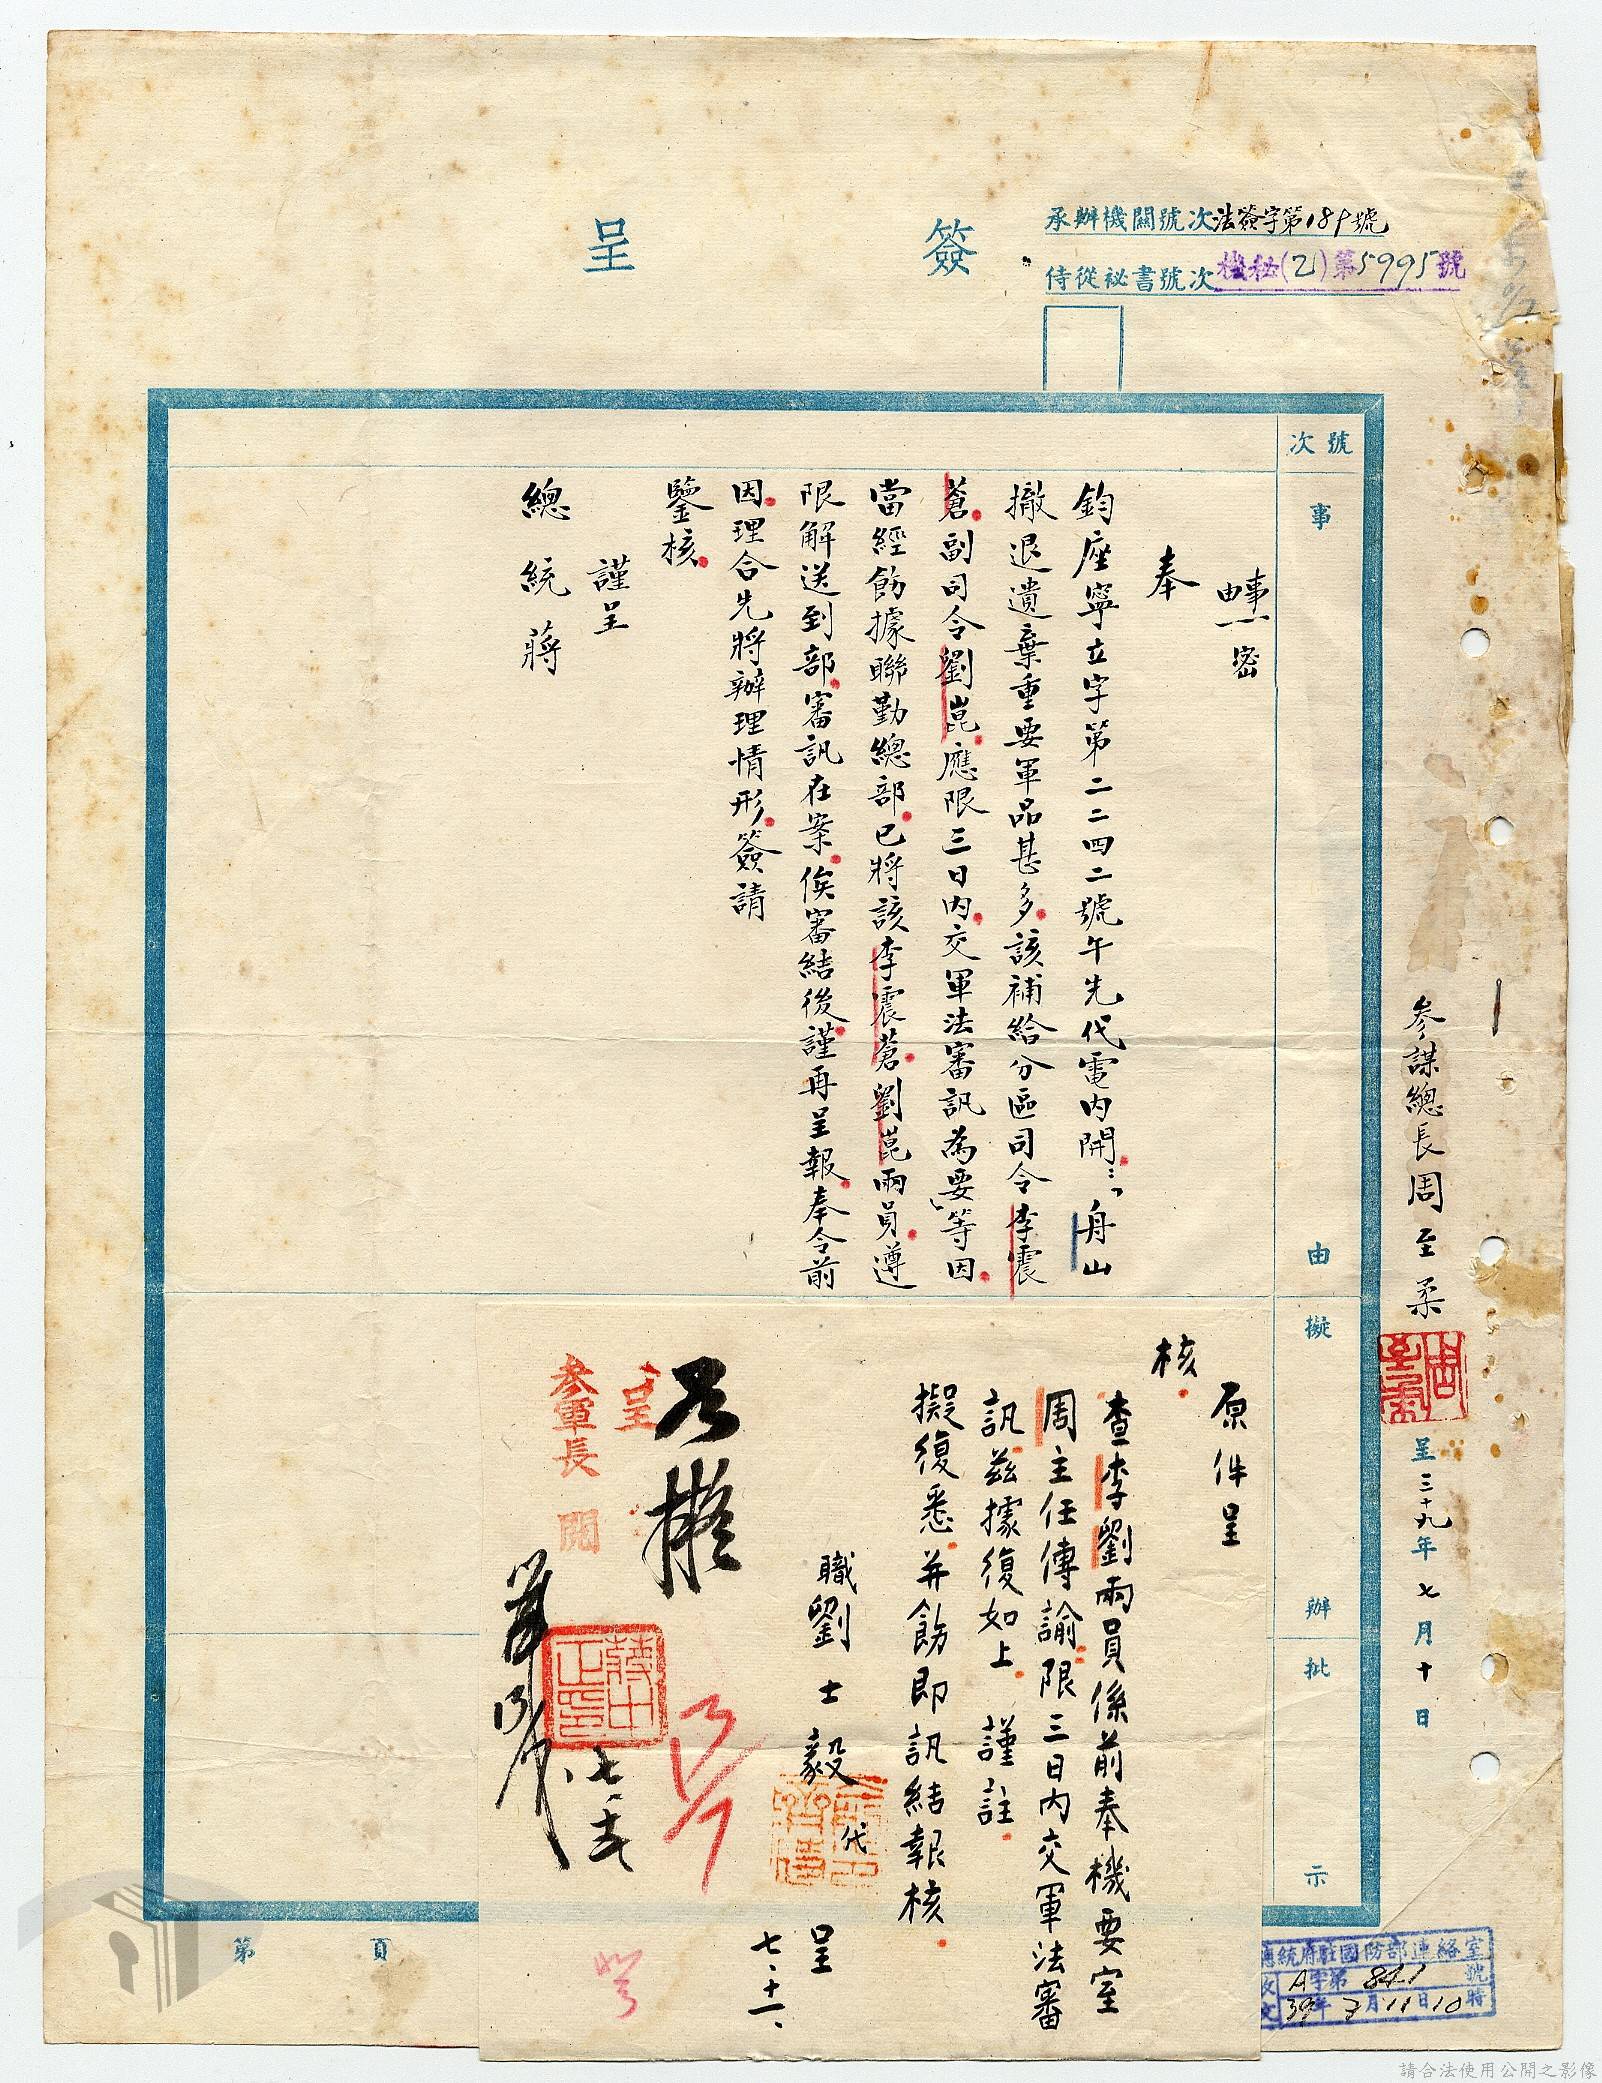 簽呈
承辦機關號次法簽字第189號
侍從祕書號次機秘(2)第5995號
號次
事由
擬辦
批示
事由一密
奉
鈞座寧立字第二二四二號午先代電內開：「舟山
撤退遺棄重要軍品甚多該補給分區司令李震
蒼副司令劉崑應限三日內交軍法審訊為要」等因
當經飭據聯勤總部已將該李震蒼劉崑兩員遵
限解送到部審訊在案俟審結後謹再呈報奉令前
因理合先將辦理情形簽請
鑒核
謹呈
總統蔣
參謀總長周至柔
呈三十九年七月十日
原件呈
核
查李劉兩員係前奉機要室
周主任傳諭限三日內交軍法審
訊茲據復如上 謹註
擬復悉并飭即訊結報核
職劉士毅代呈
七、十一、
如擬
呈
參軍長 閱
蔣中正印
第 頁
總統府駐國防部連絡室
收A字第841號
文39年7月11日10時
請合法使用公開之影像